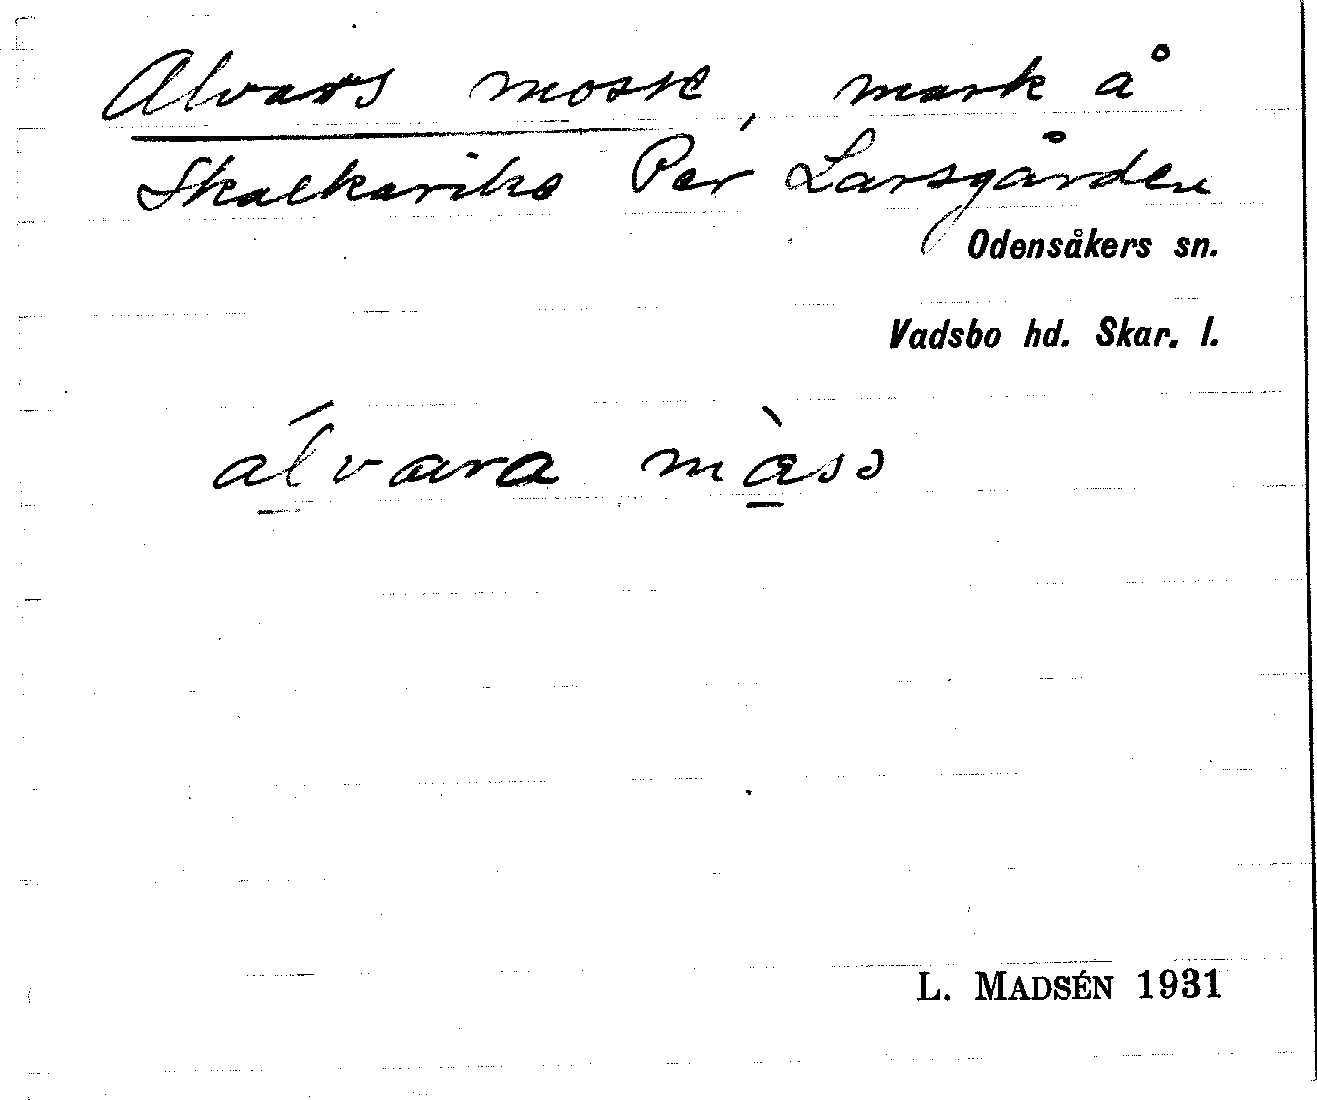 Alvars mosse, mark å
Skalkarike Per Larsgården
Odensåkers sn.
Vadsbo hd. Skar. l.
álvara màsə
L. MADSÉN 1931